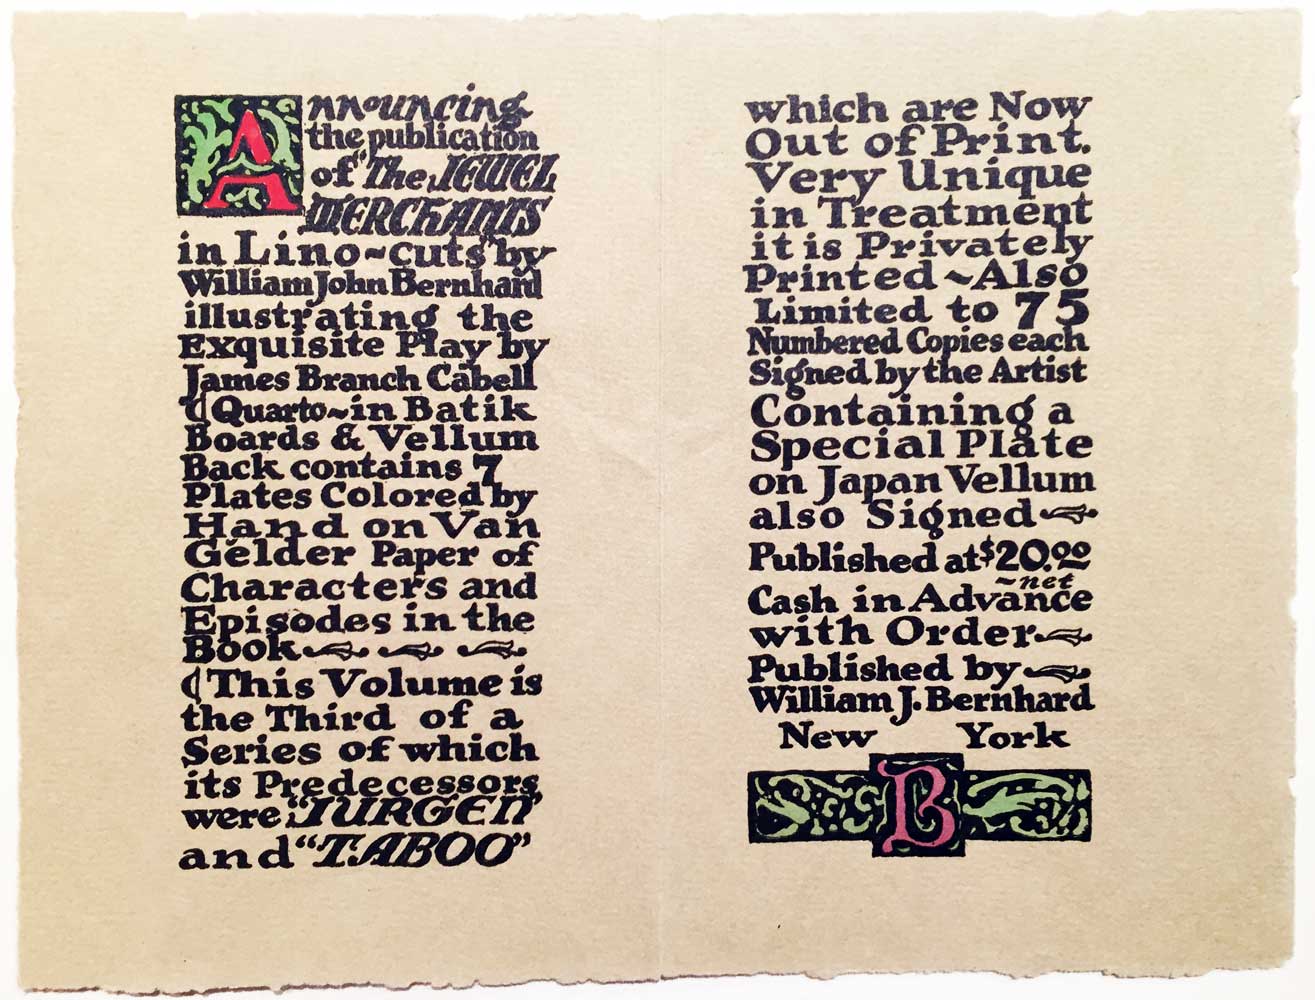 Announcing
the publication
of "The JEWEL
MERCHANTS
in Lino~cuts" by
William John Bernhard
illustrating the
Exquisite Play by
James Branch Cabell
¶ Quarto~in Batik
Boards & Vellum
Back contains 7
Plates Colored by
Hand on Van
Gelder Paper of
Characters and
Episodes in the
Book
¶ This Volume is
the Third of a
Series of which
its Predecessors
were "JURGEN"
and "TABOO"
which are Now
Out of Print.
Very Unique
in Treatment
it is Privately
Printed ~ Also
Limited to 75
Numbered Copies each
Signed by the Artist
Containing a
Special Plate
on Japan Vellum
also Signed
Published at $20.00
~net
Cash in Advance
with Order
Published by
William J. Bernhard
New York
B